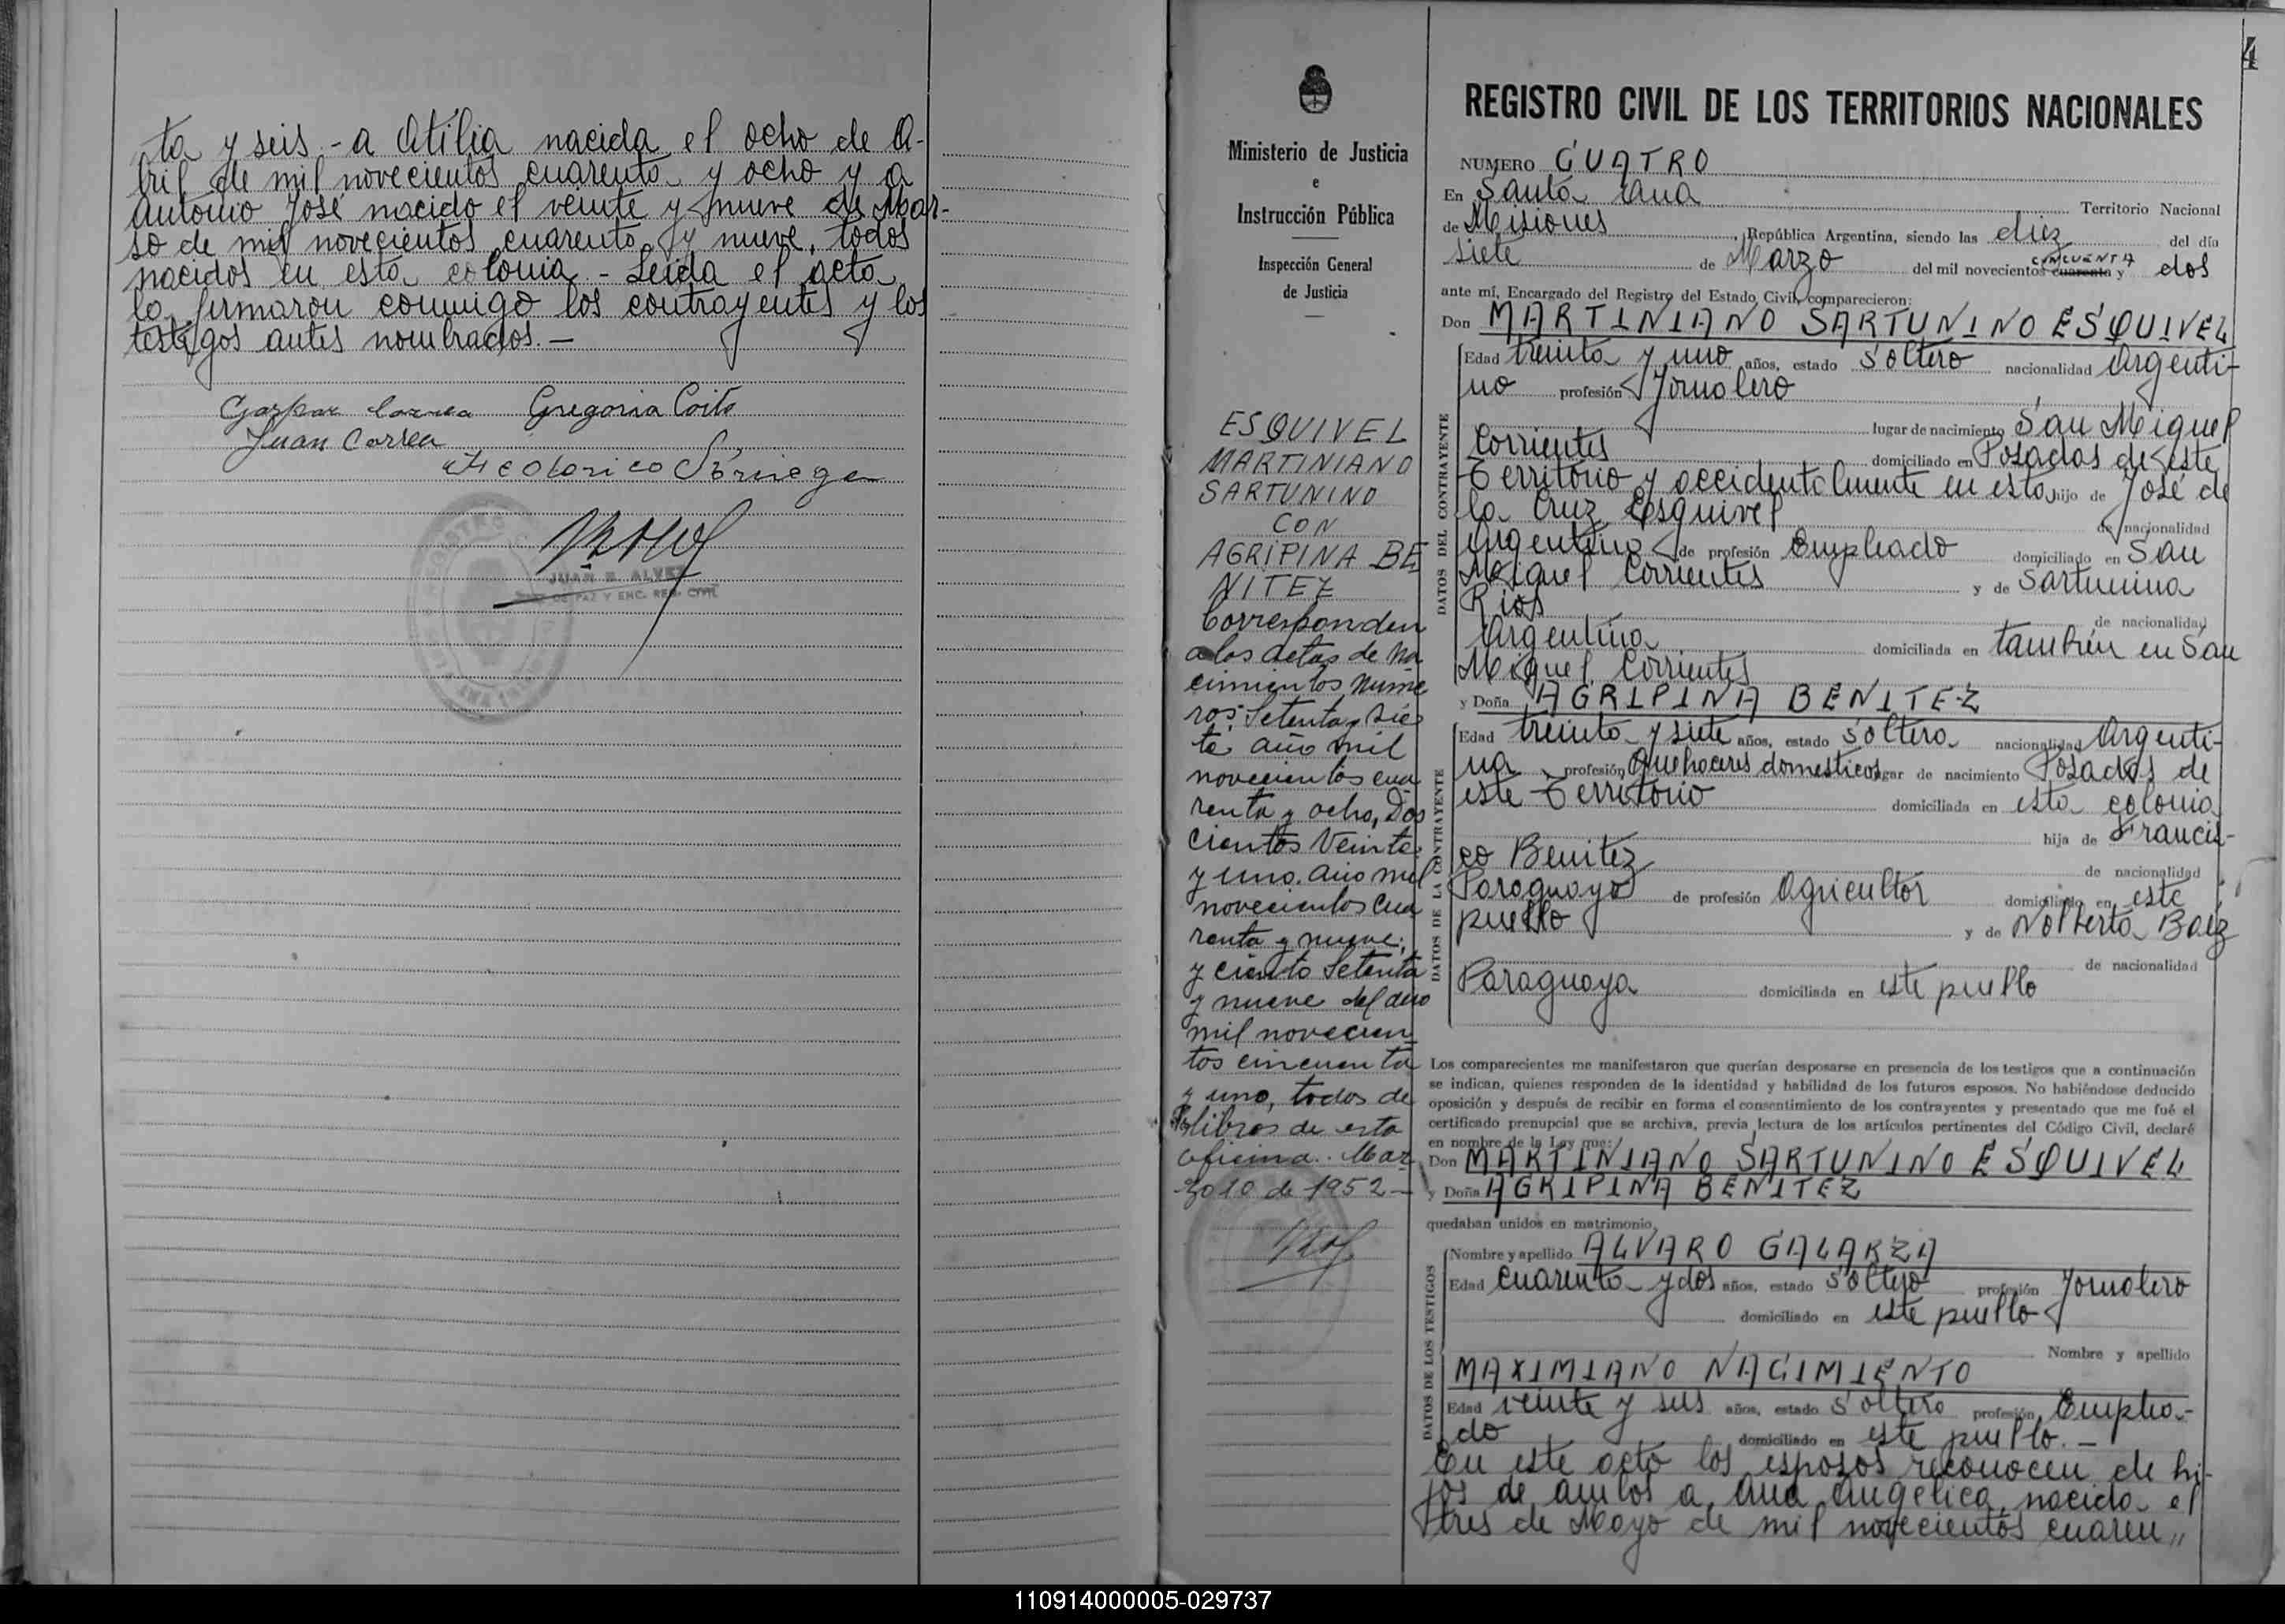 ta y seis - a Atilia nacida el ocho de A-
bril de mil novecientos cuarenta y ocho y a
Antonio José nacido el veinte y nueve de Mar-
so de mil novecientos cuarenta y nueve, todos
nacidos en esta colonia - Leida el acta
la firmaron conmigo los contrayentes y los
testigos antes nombrados. —
Gaspar Correa Gregoria Coito
Juan Correa
JUAN E. ALVEZ
DE PAZ Y ENC. REG. CIVIL
4
Ministerio de Justicia
e
Instrucción Pública
Inspección General
de Justicia
ESQUIVEL
MARTINIANO
SARTUNINO
CON
AGRIPINA BE
NITEZ
Corresponden
a las actas de na
cimientos nume
ros: Setenta y sie
te año mil
novecientos cua
renta y ocho, Dos
cientos Veinte
y uno, año mil
novecientos cua
renta y nueve;
y ciento Setenta
y nueve del año
mil novecien
tos cincuenta
y uno, todos de
libros de esta
oficina. Mar
zo 10 de 1952 —
REGISTRO CIVIL DE LOS TERRITORIOS NACIONALES
NUMERO CUATRO
En Santa Ana Territorio Nacional
de Misiones, República Argentina, siendo las diez del día
siete de Marzo del mil novecientos cuarenta CINCUENTA y dos
ante mí, Encargado del Registro del Estado Civil, comparecieron:
Don MARTINIANO SARTUNINO ESQUIVEL
DATOS DEL CONTRAYENTE
Edad treinta y uno años, estado soltero nacionalidad Argenti-
no profesión Jornalero
lugar de nacimiento San Miguel
Corrientes domiciliado en Posadas de este
Territorio y accidentalmente en esta, hijo de José de
la Cruz Esquivel de nacionalidad
Argentino de profesión Empleado domiciliado en San
Miguel Corrientes y de Sartunina
Rios de nacionalidad
Argentina domiciliada en también en San
Miguel Corrientes
y Doña AGRIPINA BENITEZ
DATOS DE LA CONTRAYENTE
Edad treinta y siete años, estado soltera nacionalidad Argenti-
na profesión Quehaceres domesticos lugar de nacimiento Posadas de
este Territorio domiciliada en esta colonia
hija de Francis-
co Benitez de nacionalidad
Paraguayo de profesión Agricultor domiciliado en este
pueblo y de Nolberta Baez
de nacionalidad
Paraguaya domiciliada en este pueblo
Los comparecientes me manifestaron que querían desposarse en presencia de los testigos que a continuación
se indican, quienes responden de la identidad y habilidad de los futuros esposos. No habiéndose deducido
oposición y después de recibir en forma el consentimiento de los contrayentes y presentado que me fué el
certificado prenupcial que se archiva, previa lectura de los artículos pertinentes del Código Civil, declaré
en nombre de la Ley que:
Don MARTINIANO SARTUNINO ESQUIVEL
y Doña AGRIPINA BENITEZ
quedaban unidos en matrimonio.
DATOS DE LOS TESTIGOS
Nombre y apellido ALVARO GALARZA
Edad cuarenta y dos años, estado soltero profesión Jornalero
domiciliado en este pueblo
Nombre y apellido
MAXIMIANO NACIMIENTO
Edad veinte y seis años, estado soltero profesión Emplea-
do domiciliado en este pueblo. —
En este acto los esposos reconocen de hi-
jos de ambos a Ana Angélica, nacida el
tres de Mayo de mil novecientos cuaren„
110914000005-029737